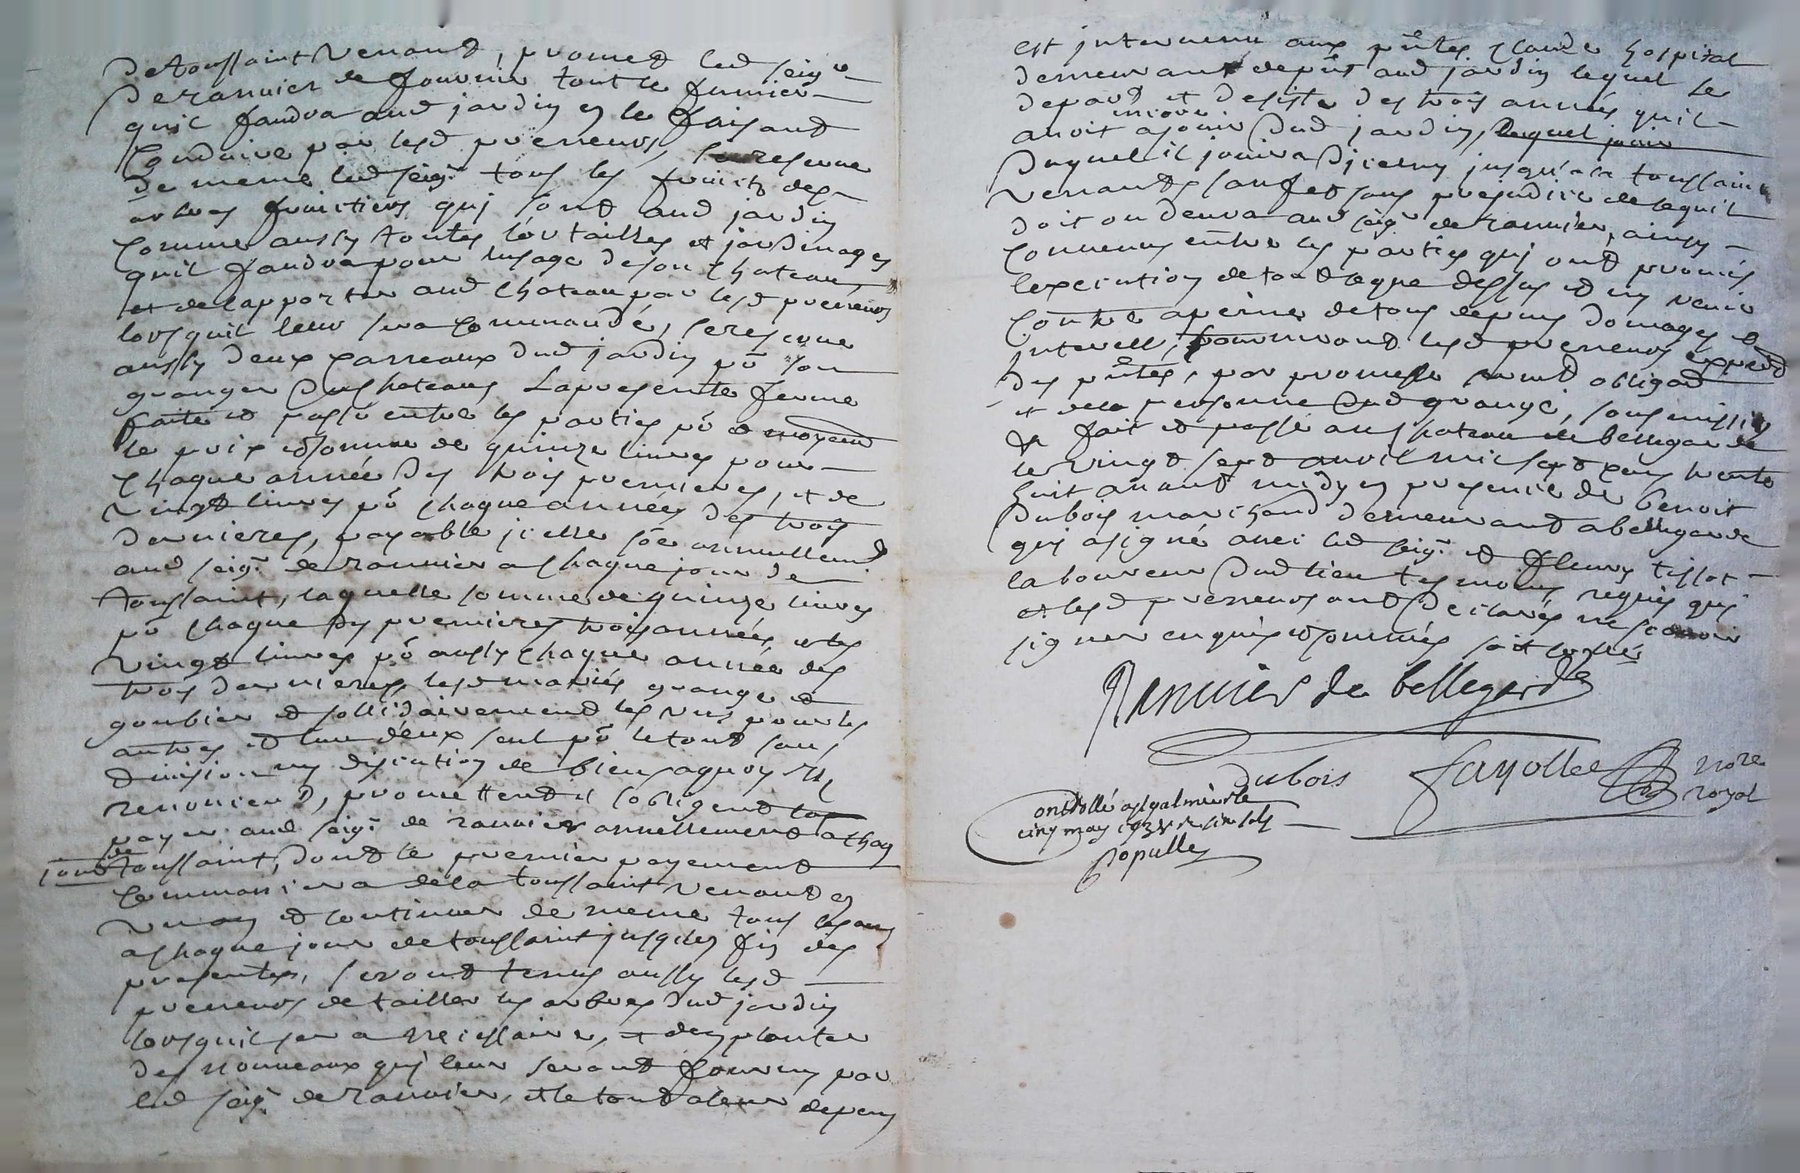 de toussaint venant, promet led seigr
de rannier de fournir tout le fumier
quil faudra aud jardin en le faisant
conduire par lesd preneurs, se reserve
de meme led seigr tous les fruits des
arbres fruitiers qui sont aud jardin
comme aussy toutes les jardinages
quil faudra pour lusage de son chateau,
et de lapporter aud chateau par lesd preneurs
lorsquil leur sera commandé, se reserve
aussy deux carreaux dud jardin pô son
granger du chateau, la presente ferme
faite et passé entre les parties pô et moyent
le prix et somme de quinze livres pour
chaque année des trois premieres, et de
vingt livres pô chaque année des trois
dernieres, payable icelle sôe annuellemt
aud seigr de rannier a chaque jour de
toussaint, laquelle somme de quinze livres
pô chaque des premieres trois années et les
vingt livres pô aussy chaque année des
trois dernieres lesd mariés grange et
goubier et sollidairement les uns pour les
autres et lun deux seul pô le tout sans
division ny discution de biens a quoy ils
renoncent, promettent et sobligent
payer aud seigr de rannier annuellement a chaq
jour de toussaint, dont le premier payement
commancera de la toussaint venant en
un an et continuer de meme tous les ans
a chaque jour de toussaint jusques fin des
presentes, seront tenus aussy lesd
preneurs de tailler les arbres dud jardin
lorsquil sera necessaire, et den planter
des nouveaux qui leur seront fourny par
led seigr de rannier, et le tout a leur depens
est intervenu aux pntes claude hospital
demeurant depnt aud jardin lequel se
depart et desiste des trois années quil
avoit encore a jouir dud jardin, lequel jouir
duquel il jouira dicelluy jusqua la toussaint
venant, sauf et sans prejudice de ce quil
doit ou devra aud seigr de rannier, ainsy
convenu entre les parties qui ont promis
lexecution de tout ce que dessus et ny venir
contre a peine de tous depens domages et
interets, fourniront lesd preneurs expedt
des pntes, par promesse serment obligaôn
et de la personne dud grange, soumission
&c fait et passé au chateau de bellegarde
le vingt sept avril mil sept cens trente
huit avant midy en presence de benoit
dubois marchand demeurant a bellegarde
qui a signé avec led seigr et fleury tissot
laboureur dud lieu tesmoins requis qui
et lesd preneurs ont declarés ne scavoir
signer enquis et sommés soit controllé
Rannier de bellegarde
dubois
fayolle
nore
royal
controllé a st galmier le
cinq may 1738 r. six sols
Populle